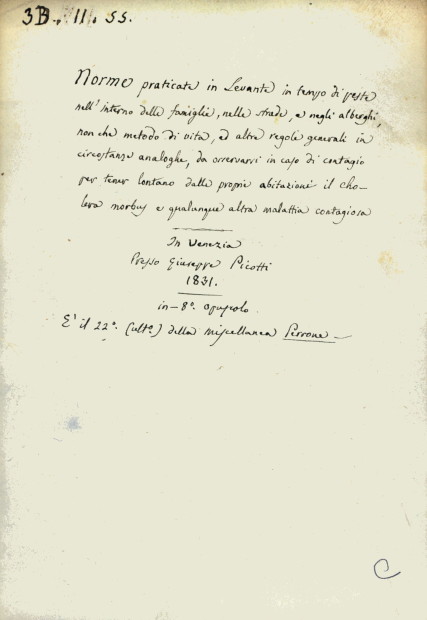 3B. II. 55.
Norme praticate in Levante in tempo di peste
nell'interno delle famiglie, nelle strade, e negli alberghi,
non che metodo di vita, ed altre regole generali in
circostanze analoghe, da osservarsi in caso di contagio
per tener lontano dalle proprie abitazioni il cho-
lera morbus e qualunque altra malattia contagiosa
In Venezia
Presso Giuseppe Picotti
1831.
in-8º. opuscolo
E' il 22º. (ultº.) della Miscellanea Perrone-
C